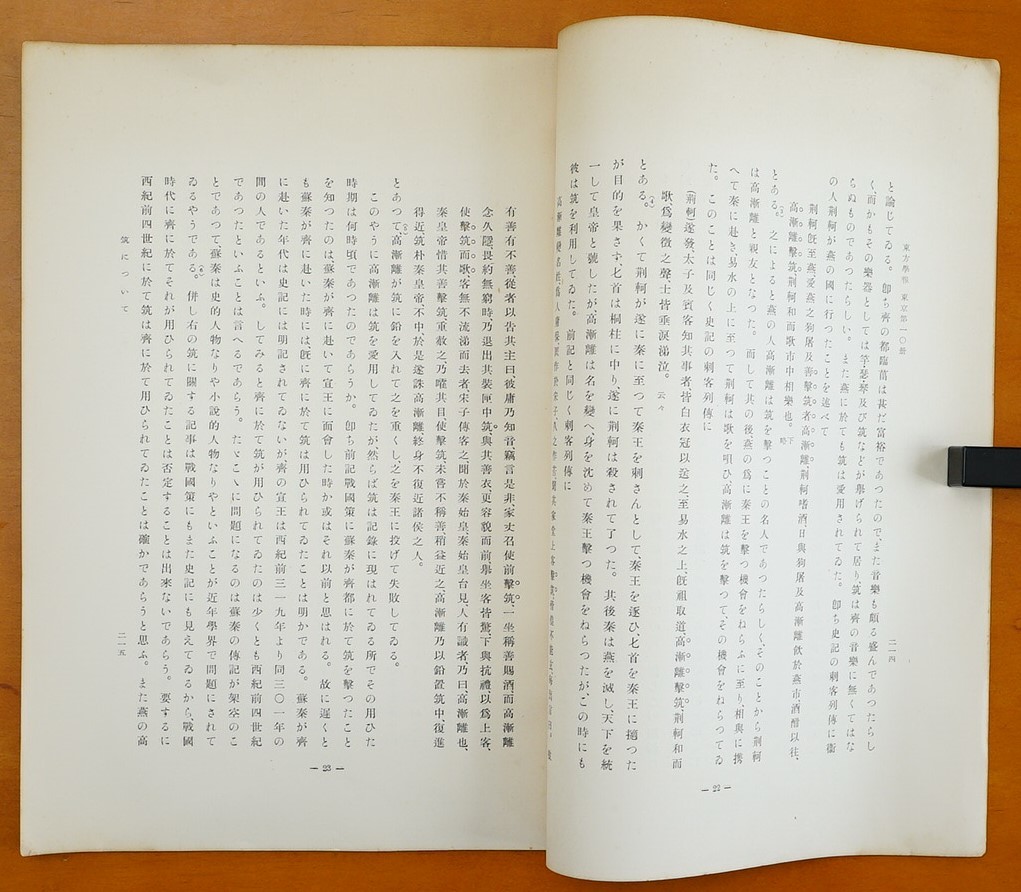 東方學報 東京第一〇册
二二四
と論じてゐる。卽ち齊の都臨菑は甚だ富裕であつたので、また音樂も頗る盛んであつたらし
く、而かもその樂器としては竽瑟琴及び筑などが擧げられて居り、筑は齊の音樂に無くてはな
らぬものであつたらしい。また燕に於ても筑は愛用されてゐた。卽ち史記の刺客列傳に衞
の人荆軻が燕の國に行つたことを述べて
荆軻旣至燕、愛燕之狗屠及善擊筑者高漸離、荆軻嗜酒、日與狗屠及高漸離飮於燕市、酒酣以往、
高漸離擊筑、荆軻和而歌市中相樂也。下略
とある。之によると燕の人高漸離は筑を擊つことの名人であつたらしく、そのことから荆軻
は高漸離と親友となつた。而して其の後燕の爲に秦王を擊つ機會をねらふに至り、相與に携
へて秦に赴き、易水の上に至つて荆軻は歌を唄ひ、高漸離は筑を擊つて、その機會をねらつてゐ
た。このことは同じく史記の刺客列傳に
(荆軻)遂發、太子及賓客知其事者、皆白衣冠以送之、至易水之上、旣祖取道、高漸離擊筑、荆軻和而
歌、爲變徵之聲、士皆垂淚涕泣。云々
とある。かくて荆軻が遂に秦に至つて秦王を刺さんとして、秦王を逐ひ、匕首を秦王に擿つた
が目的を果さず、匕首は桐柱に中り、遂に荆軻は殺されて了つた。其後秦は燕を滅し、天下を統
一して皇帝と號したが、高漸離は名を變へ、身を沈めて秦王擊つ機會をねらつたが、この時にも
彼は筑を利用してゐた。前記と同じく刺客列傳に
高漸離變名姓、爲人庸保、
— 22 —
有善有不善、從者以吿其主曰、彼庸乃知音、竊言是非、家丈召使前擊筑、一坐稱善賜酒、而高漸離
念久隱畏約無窮時、乃退出其裝匣中筑、與其善衣、更容貌而前、擧坐客皆驚、下與抗禮、以爲上客、
使擊筑而歌、客無不流涕而去者、宋子傳客之、聞於秦始皇、秦始皇召見、人有識者、乃曰、高漸離也、
秦皇帝惜其善擊筑、重赦之、乃矐其目、使擊筑、未嘗不稱善、稍益近之、高漸離乃以鉛置筑中、復進
得近、筑朴秦皇帝、不中、於是遂誅高漸離、終身不復近諸侯之人。
とあつて、高漸離が筑に鉛を入れて之を重くし、之を秦王に投げて失敗してゐる。
このやうに高漸離は筑を愛用してゐたが、然らば筑は記錄に現はれてゐる所でその用ひた
時期は何時頃であつたのであらうか。卽ち前記戰國策に蘇秦が齊都に於て筑を擊つたこと
を知つたのは、蘇秦が齊に赴いて宣王に面會した時か或はそれ以前と思はれる。故に遲くと
も蘇秦が齊に赴いた時には、旣に齊に於て筑は用ひられてゐたことは明かである。蘇秦が齊
に赴いた年代は史記には明記されてゐないが、齊の宣王は西紀前三一九年より同三〇一年の
間の人であるといふ。してみると齊に於て筑が用ひられてゐたのは少くとも西紀前四世紀
であつたといふことは言へるであらう。たゞこゝに問題になるのは蘇秦の傳記が架空のこ
とであつて蘇秦は史的人物なりや小說的人物なりやといふことが近年學界で問題にされて
ゐるやうである。併し右の筑に關する記事は戰國策にもまた史記にも見えてゐるから、戰國
時代に齊に於てそれが用ひられてゐたことは否定することは出來ないであらう。要するに
西紀前四世紀に於て筑は齊に於て用ひられてゐたことは確かであらうと思ふ。また燕の高
筑について
二二五
— 23 —